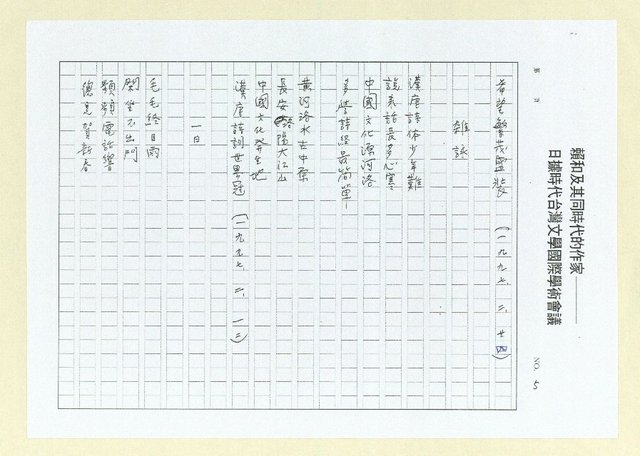 賴和及其同時代的作家——
日據時代台灣文學國際學術會議
第 頁
NO. 5
希望繁茂盛裝 (一九九七、二、廿四)
雜詠
漢唐詩体少年難
說來話長多心寒
中國文化源河洛
多情詩經最簡單
黃河洛水古中原
長安洛陽大江山
中國文化發生地
漢唐詩詞世界冠 (一九九七、二、一三)
一日
毛毛終日雨
閑坐不出門
頻頻電話響
總是賀新春